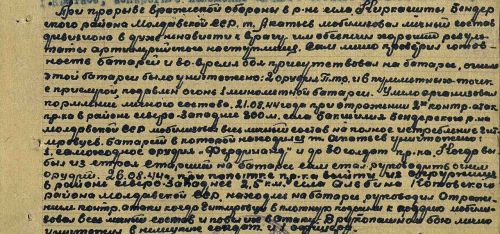 При прорыве вражеской обороны в р-не села Киркаешты Бендер
ского района Молдавской ССР т. Акатьев мобилизовал личный состав
дивизиона в духе ненависти к врагу, чем обеспечил хороший резуль
тат артиллерийского наступления. Сам лично проверил готов
ность батарей и во время боя присутствовал на батарее, огнем
этой батареи было уничтожено: 2 орудия ПТО, и 8 пулеметных точек
с прислугой подавлен огонь 1 минометной батареи. Умело организовал
кормление личного состава. 21.08.44 года при отражении 2х контр-атак
пр-ка в районе северо-западнее 300 м. села Бакчилия Бендерского р-на
Молдавской ССР мобилизовал весь личный состав на полное истребление
батареей в которой находился т. Акатьев уничтожено:
1 самоходное орудие "Фердинанд" и до 30 солдат пр-ка.
был из строя старший на батарее сам стал руководить огнем
орудий. 26.08.44 года при попытке пр-ка выйти из окружения
в районе северо-западнее 2,5 км. села Албина Котовского
района Молдавской ССР, находясь на батарее руководил отраже-
нием контр-атаки когда гитлеровцы в плотную подошли к орудию мобили-
зовал весь личный состав и повел их в атаку. В рукопашном бою лично
уничтожил 8 немецких солдат и 1 офицера.